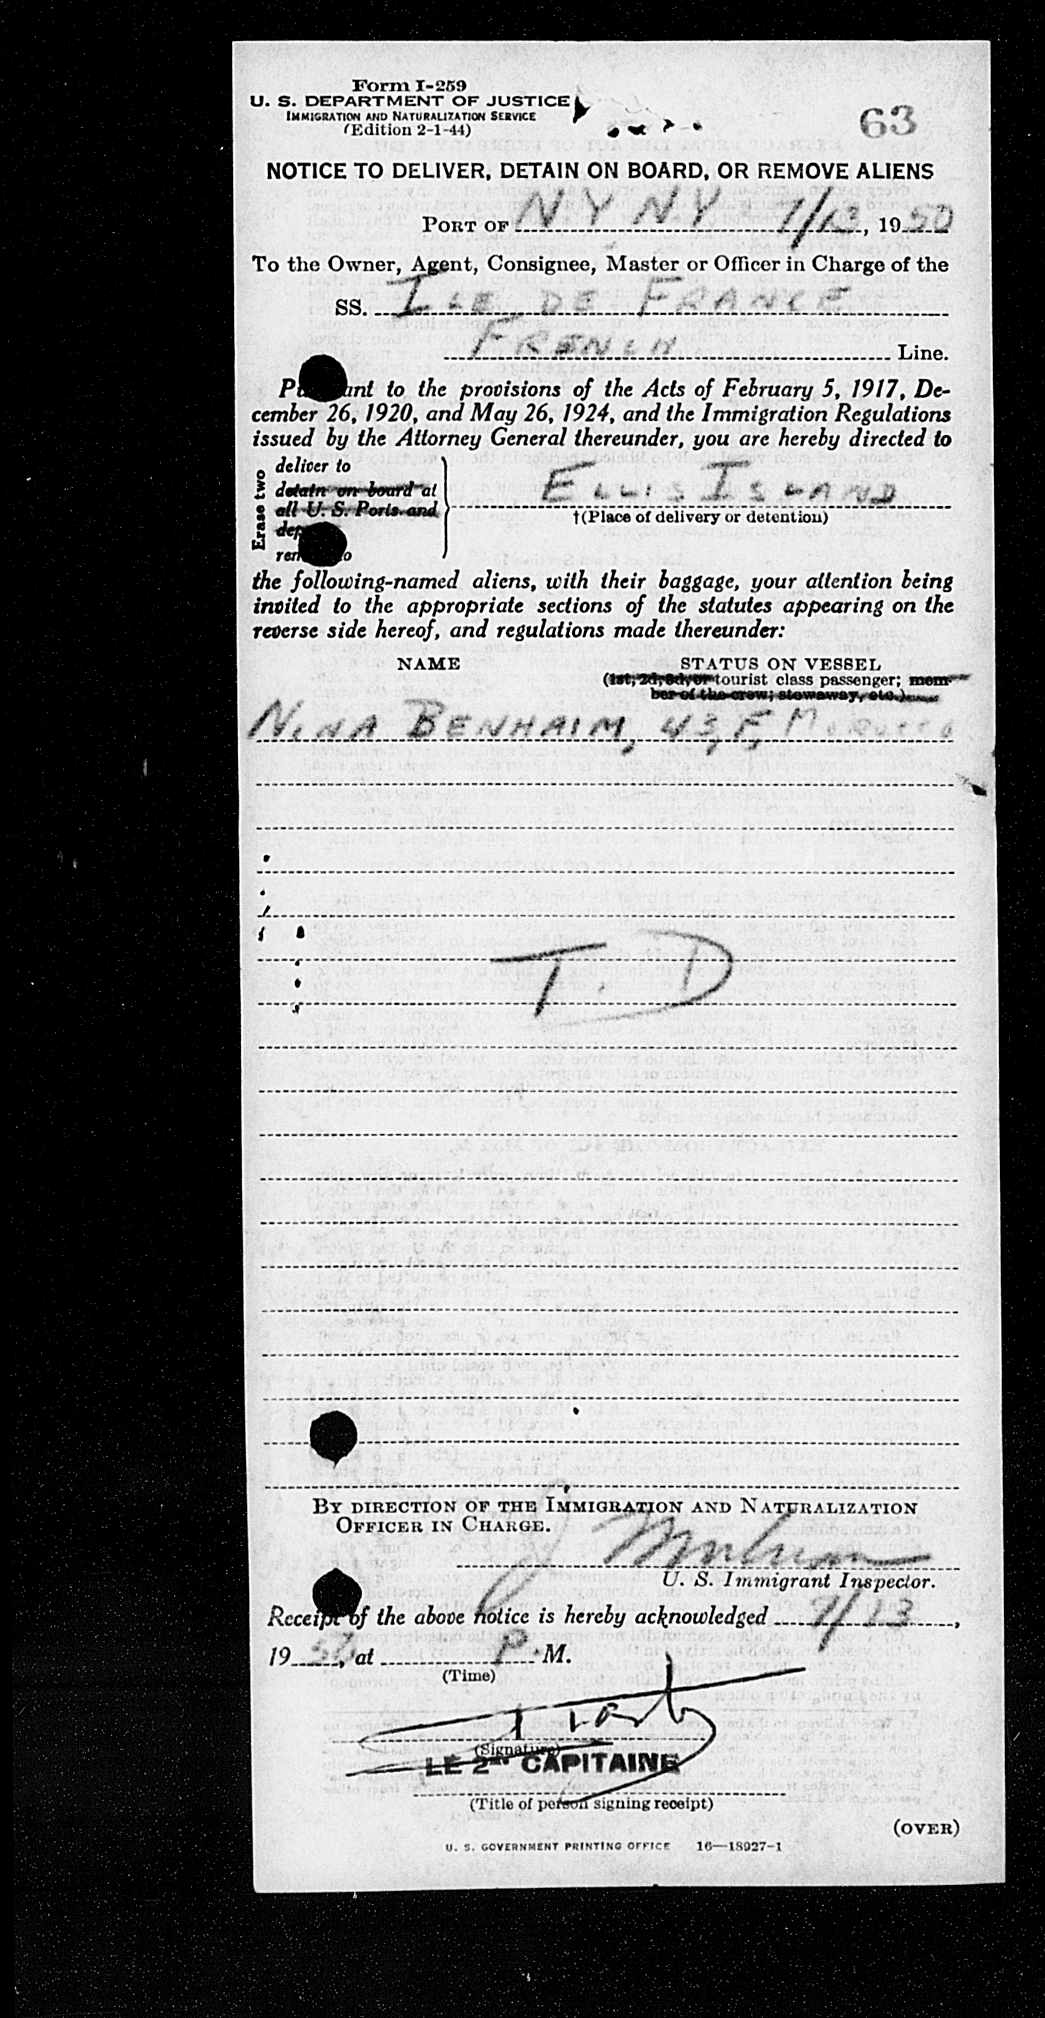 Form I-259
U. S. DEPARTMENT OF JUSTICE
IMMIGRATION AND NATURALIZATION SERVICE
(Edition 2-1-44)
63
NOTICE TO DELIVER, DETAIN ON BOARD, OR REMOVE ALIENS
PORT OF NY NY 9/13, 1950
To the Owner, Agent, Consignee, Master or Officer in Charge of the
SS. ILE DE FRANCE
FRENCH Line.
Pursuant to the provisions of the Acts of February 5, 1917, De-
cember 26, 1920, and May 26, 1924, and the Immigration Regulations
issued by the Attorney General thereunder, you are hereby directed to
Erase two
deliver to
detain on board at
all U. S. Ports and
ELLIS ISLAND
†(Place of delivery or detention)
the following-named aliens, with their baggage, your attention being
invited to the appropriate sections of the statutes appearing on the
reverse side hereof, and regulations made thereunder:
NAME STATUS ON VESSEL
(1st, 2d, 3d, or tourist class passenger; mem-
ber of the crew; stowaway, etc.)
NINA BENHAIM, 43, F, MOROCCO
T. D
BY DIRECTION OF THE IMMIGRATION AND NATURALIZATION
OFFICER IN CHARGE.
U. S. Immigrant Inspector.
Receipt of the above notice is hereby acknowledged 9/13,
19 50, at P. M.
(Time)
(Signature)
LE 2me CAPITAINE
(Title of person signing receipt)
(OVER)
U. S. GOVERNMENT PRINTING OFFICE 16—18927-1